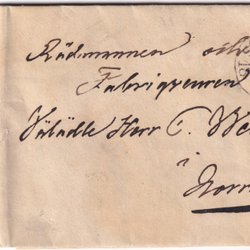 Rådmannen och
Fabriqueuren
Välädle Herr C. We
i
Norr